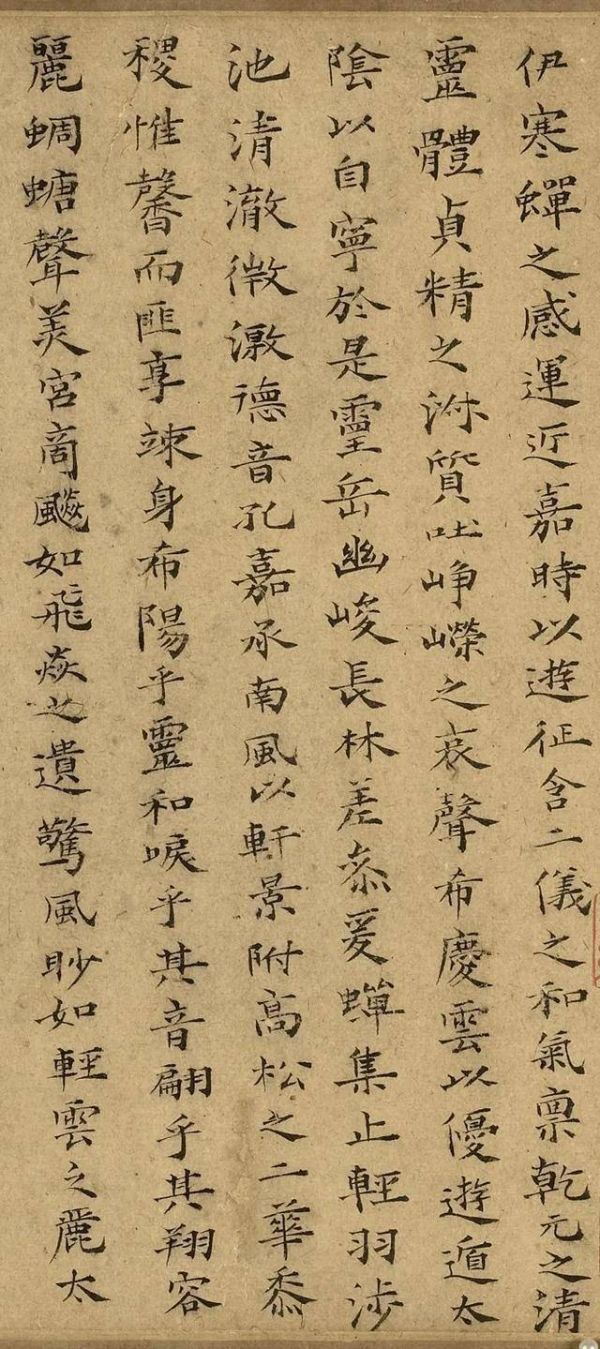 伊寒蟬之感運近嘉時以遊征含二儀之和氣禀乾元之清
靈體貞精之淑質吐崢嶸之哀聲希慶雲以優遊遁太
陰以自寧於是靈岳幽峻長林差叅爰蟬集止輕羽涉
池清澈微激德音孔嘉承南風以軒景附高松之二華黍
稷惟馨而匪享竦身希陽乎靈和唳乎其音翩乎其翔容
麗蜩螗聲美宮商飈如飛焱之遺驚風眇如輕雲之麗太